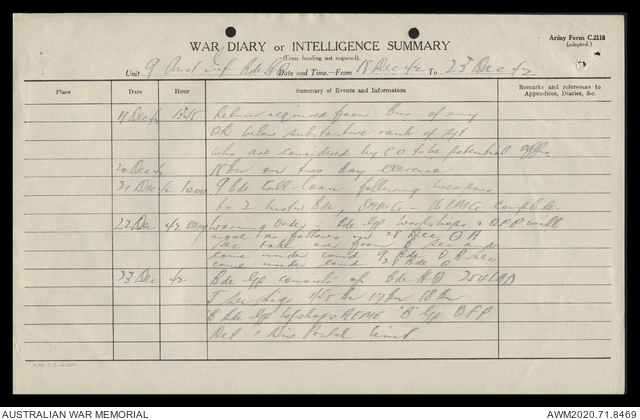 Army Form C.2118
(adapted.)
WAR DIARY or INTELLIGENCE SUMMARY
(Erase heading not required).
Unit 9 Aust Inf Bde HQ Date and Time.—From 18 Dec 42 To 23 Dec 42
Place Date Hour Summary of Events and Information Remarks and references to Appendices, Diaries, &c.
Dec Return required from Bns of any
OR below substantive rank of Sgt
who are considered by CO to be potential offrs.
20 Dec 18 Bn on two day exercise
21 Dec 42 1000 9 Bde will loan following weapons
to 2 Motor Bde, 8 MMG - 16 LMG complete
22 Dec 42 Warning Order: Bde Gp Workshops & OFP will
as follows on 28 Dec A
Sec take over from B Sec and
come under comd 9 Bde B Sec
come under comd Bde
23 Dec 42 Bde Gp consists of Bde HQ LAD
J Sec Sigs Bn 17 Bn 18 Bn
Bde Gp Wkshops AEME "B" Gp OFP
Det 1 Div Postal Unit.
AUSTRALIAN WAR MEMORIAL
AWM2020.71.8469